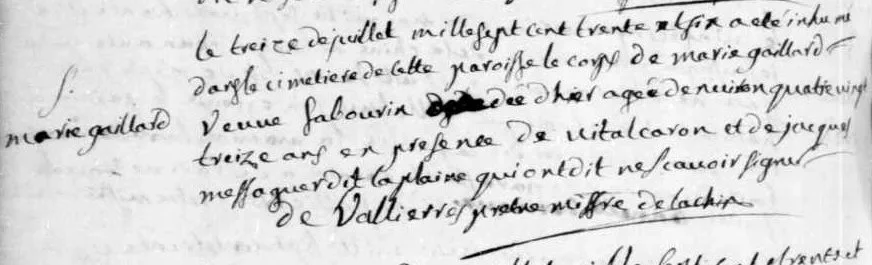 le treize de juillet mille sept cent trente et six a eté inhumé
S.
dans le cimetiere de cette paroisse le corps de marie gaillard
marie gaillard
veuve sabourin decedée d'hier agée denviron quatre vingt
treize ans en presence de vital caron et de jacques
messaguer dit laplaine qui ont dit ne scavoir signer
de Vallierres pretre missre de lachine